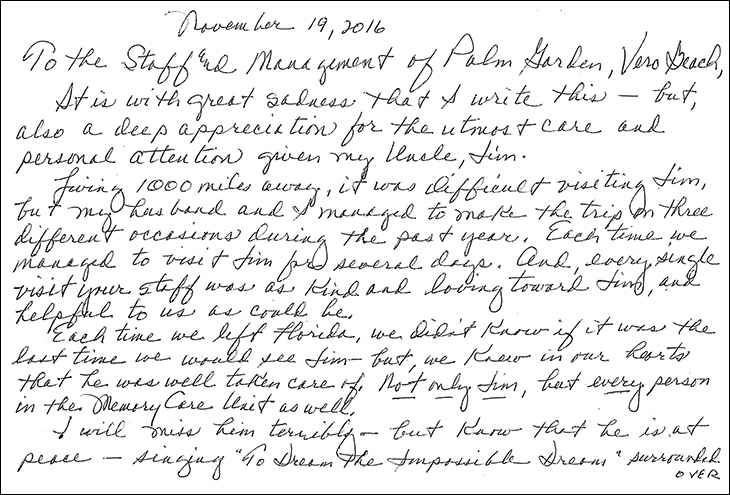 November 19, 2016
To the Staff and Management of Palm Garden, Vero Beach,
It is with great sadness that I write this — but,
also a deep appreciation for the utmost care and
personal attention given my Uncle, Jim.
Living 1000 miles away, it was difficult visiting Jim,
but my husband and I managed to make the trip on three
different occasions during the past year. Each time we
managed to visit Jim for several days. And, every single
visit your staff was as kind and loving toward Jim, and
helpful to us as could be.
Each time we left Florida, we didn't know if it was the
last time we would see Jim - but, we knew in our hearts
that he was well taken care of. Not only Jim, but every person
in the Memory Care Unit as well.
I will miss him terribly — but know that he is at
peace — singing "To Dream the Impossible Dream" surrounded
OVER